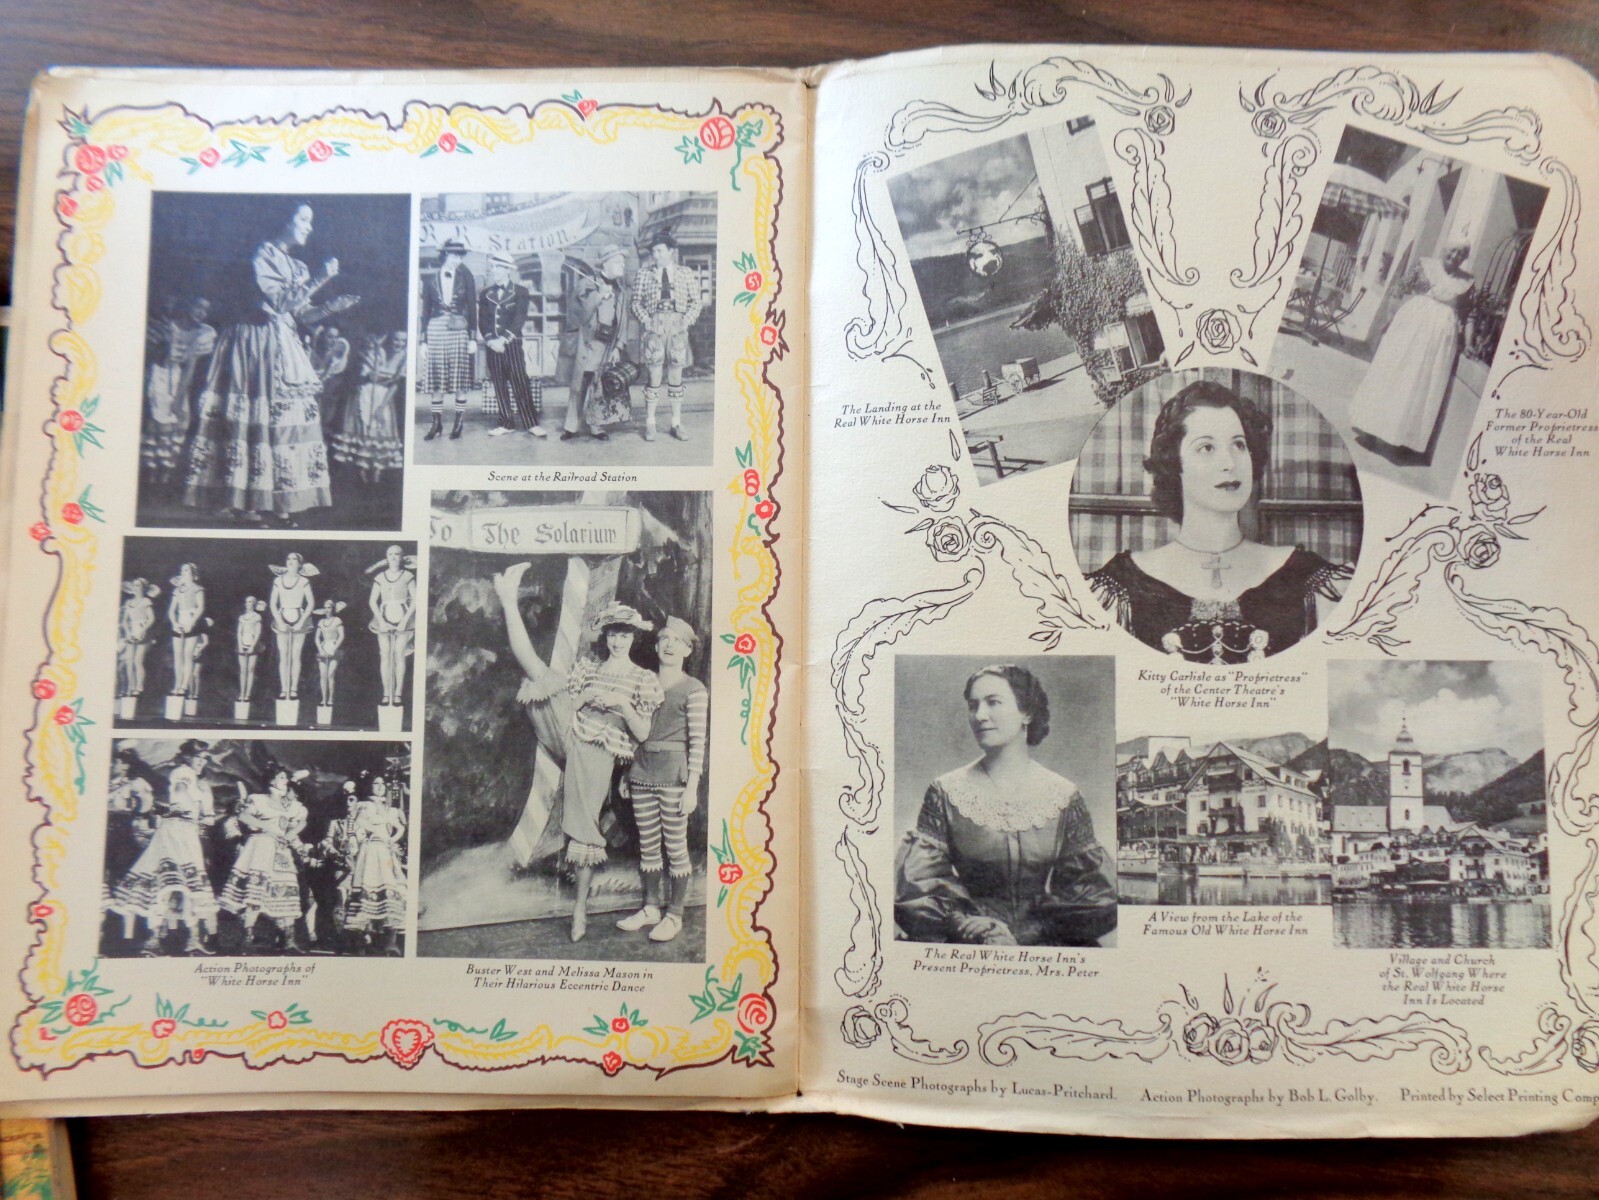 R.R. Station
Scene at the Railroad Station
To The Solarium
Action Photographs of
"White Horse Inn"
Buster West and Melissa Mason in
Their Hilarious Eccentric Dance
The Landing at the
Real White Horse Inn
The 80-Year-Old
Former Proprietress
of the Real
White Horse Inn
Kitty Carlisle as "Proprietress"
of the Center Theatre's
"White Horse Inn"
The Real White Horse Inn's
Present Proprietress, Mrs. Peter
A View from the Lake of the
Famous Old White Horse Inn
Village and Church
of St. Wolfgang Where
the Real White Horse
Inn Is Located
Stage Scene Photographs by Lucas-Pritchard. Action Photographs by Bob L. Golby. Printed by Select Printing Comp